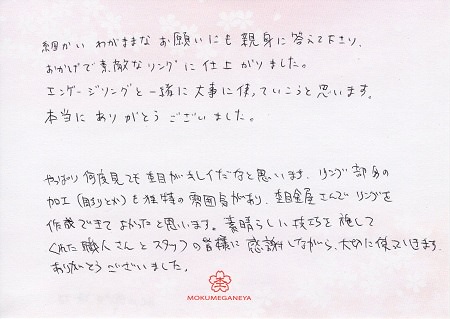 細かい わがままな お願いにも 親身に 答えて下さり、
おかげで 素敵なリングに 仕上がりました。
エンゲージリングと 一緒に 大事に 使っていこうと 思います。
本当に ありがとう ございました。
やっぱり 何度見ても 杢目が キレイだなと 思います。リング 部分の
加工（削りとか）も 独特の 雰囲気があり、杢目金屋さんで リングを
作成できて よかったと 思います。素晴らしい 技巧を 施して
くれた 職人さんと スタッフの 皆様に 感謝しながら、大切に 使っていきます。
ありがとう ございました。
MOKUMEGANEYA